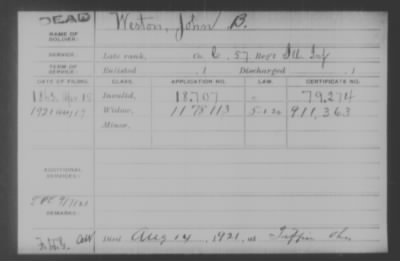 DEAD
NAME OF SOLDIER: Weston, John B.
SERVICE: Late rank, Co. C, 57 Reg't Ill. Inf
TERM OF SERVICE: Enlisted , 1 Discharged , 1
DATE OF FILING. CLASS. APPLICATION NO. LAW. CERTIFICATE NO.
1863, Invalid, 18.707 79.274
1921 Widow, 1178113 911,363
Minor,
ADDITIONAL SERVICES:
REMARKS:
Died Aug 14, 1921, at Tiffin Oh